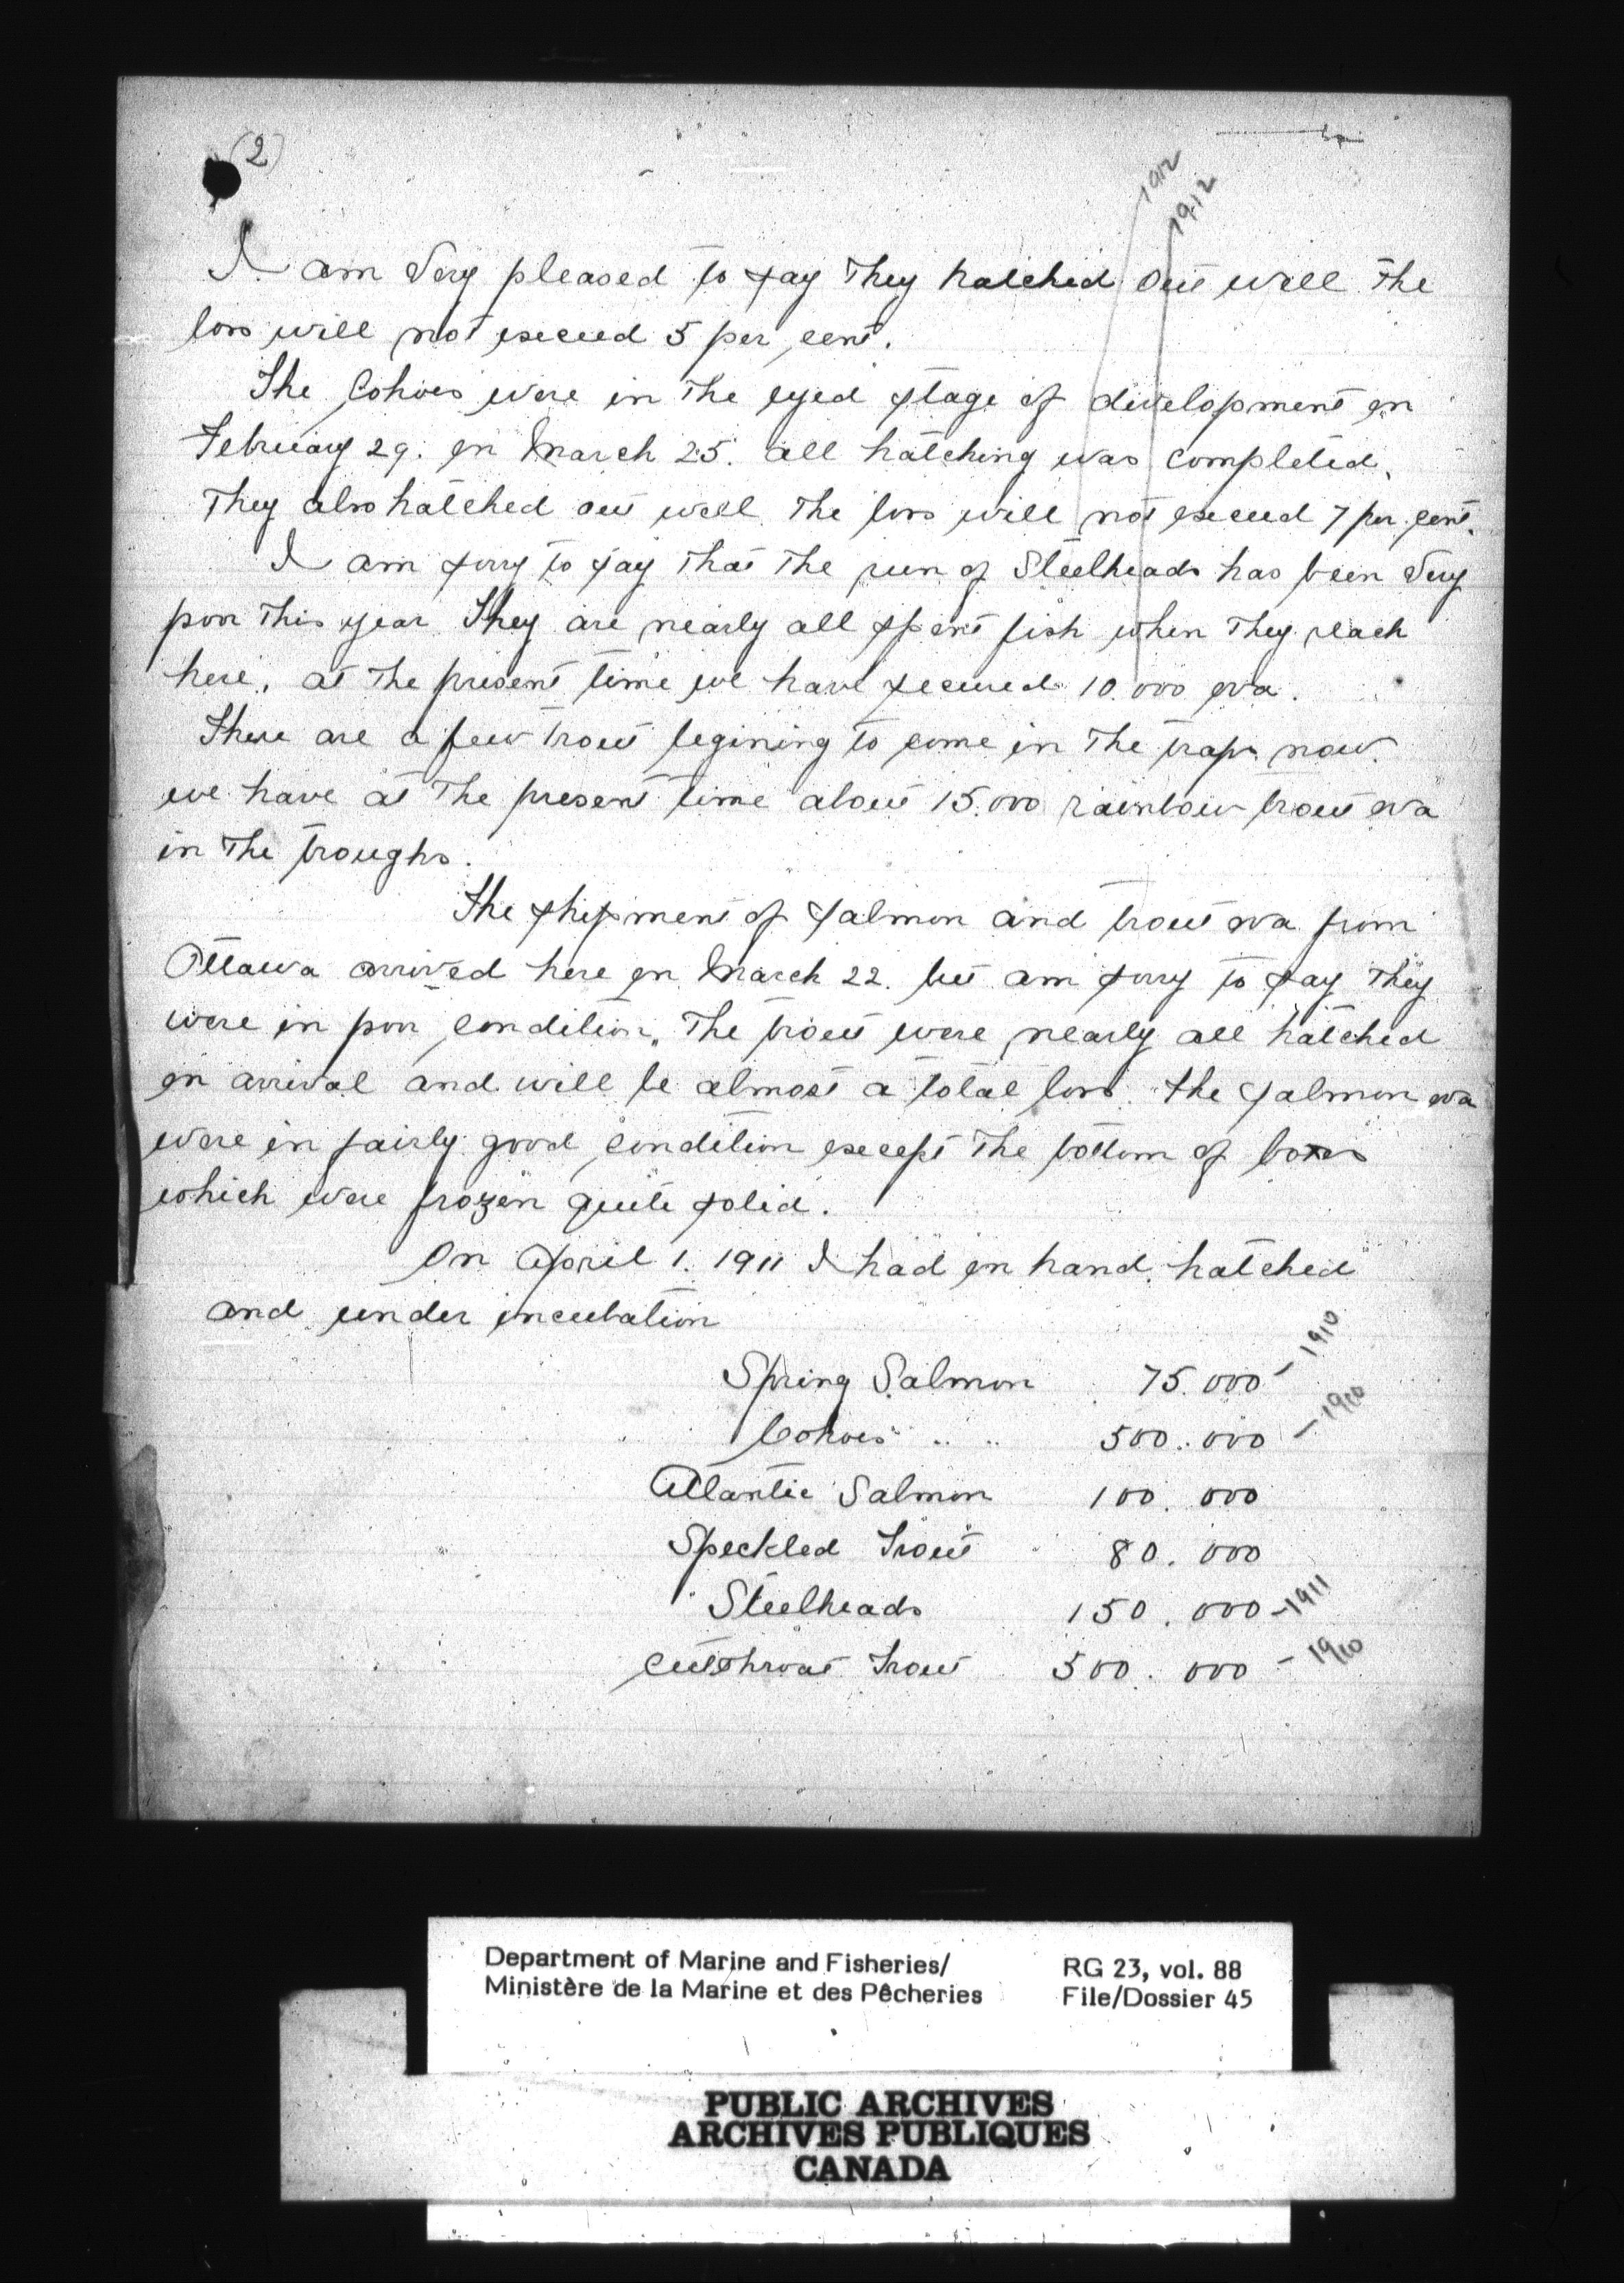 (2)
1912
1912
I am Very pleased to say They hatched out well The
loss will not exceed 5 per cent.
The Cohoes were in The eyed stage of development on
February 29. on March 25. all hatching was completed.
They also hatched out well The loss will not exceed 7 per cent.
I am sorry to say That The run of Steelheads has been Very
poor This year They are nearly all spent fish when They reach
here. at The present time we have secured 10.000 ova.
There are a few trout begining to come in The traps now.
we have at The present time about 15.000 rainbow trout ova
in The troughs.
The shipment of Salmon and trout ova from
Ottawa arrived here on March 22. but am sorry to say They
were in poor condition. The trout were nearly all hatched
on arrival and will be almost a total loss. the Salmon ova
were in fairly good condition except The bottom of boxes
which were frozen quite solid.
On April 1. 1911 I had on hand hatched
and under incubation
Spring Salmon 75.000 - 1910
Cohoes " " 500.000 - 1910
Atlantic Salmon 100.000
Speckled Trout 80.000
Steelheads 150.000 - 1911
Cutthroat Trout 500.000 - 1910
Department of Marine and Fisheries/ RG 23, vol. 88
Ministère de la Marine et des Pêcheries File/Dossier 45
PUBLIC ARCHIVES
ARCHIVES PUBLIQUES
CANADA